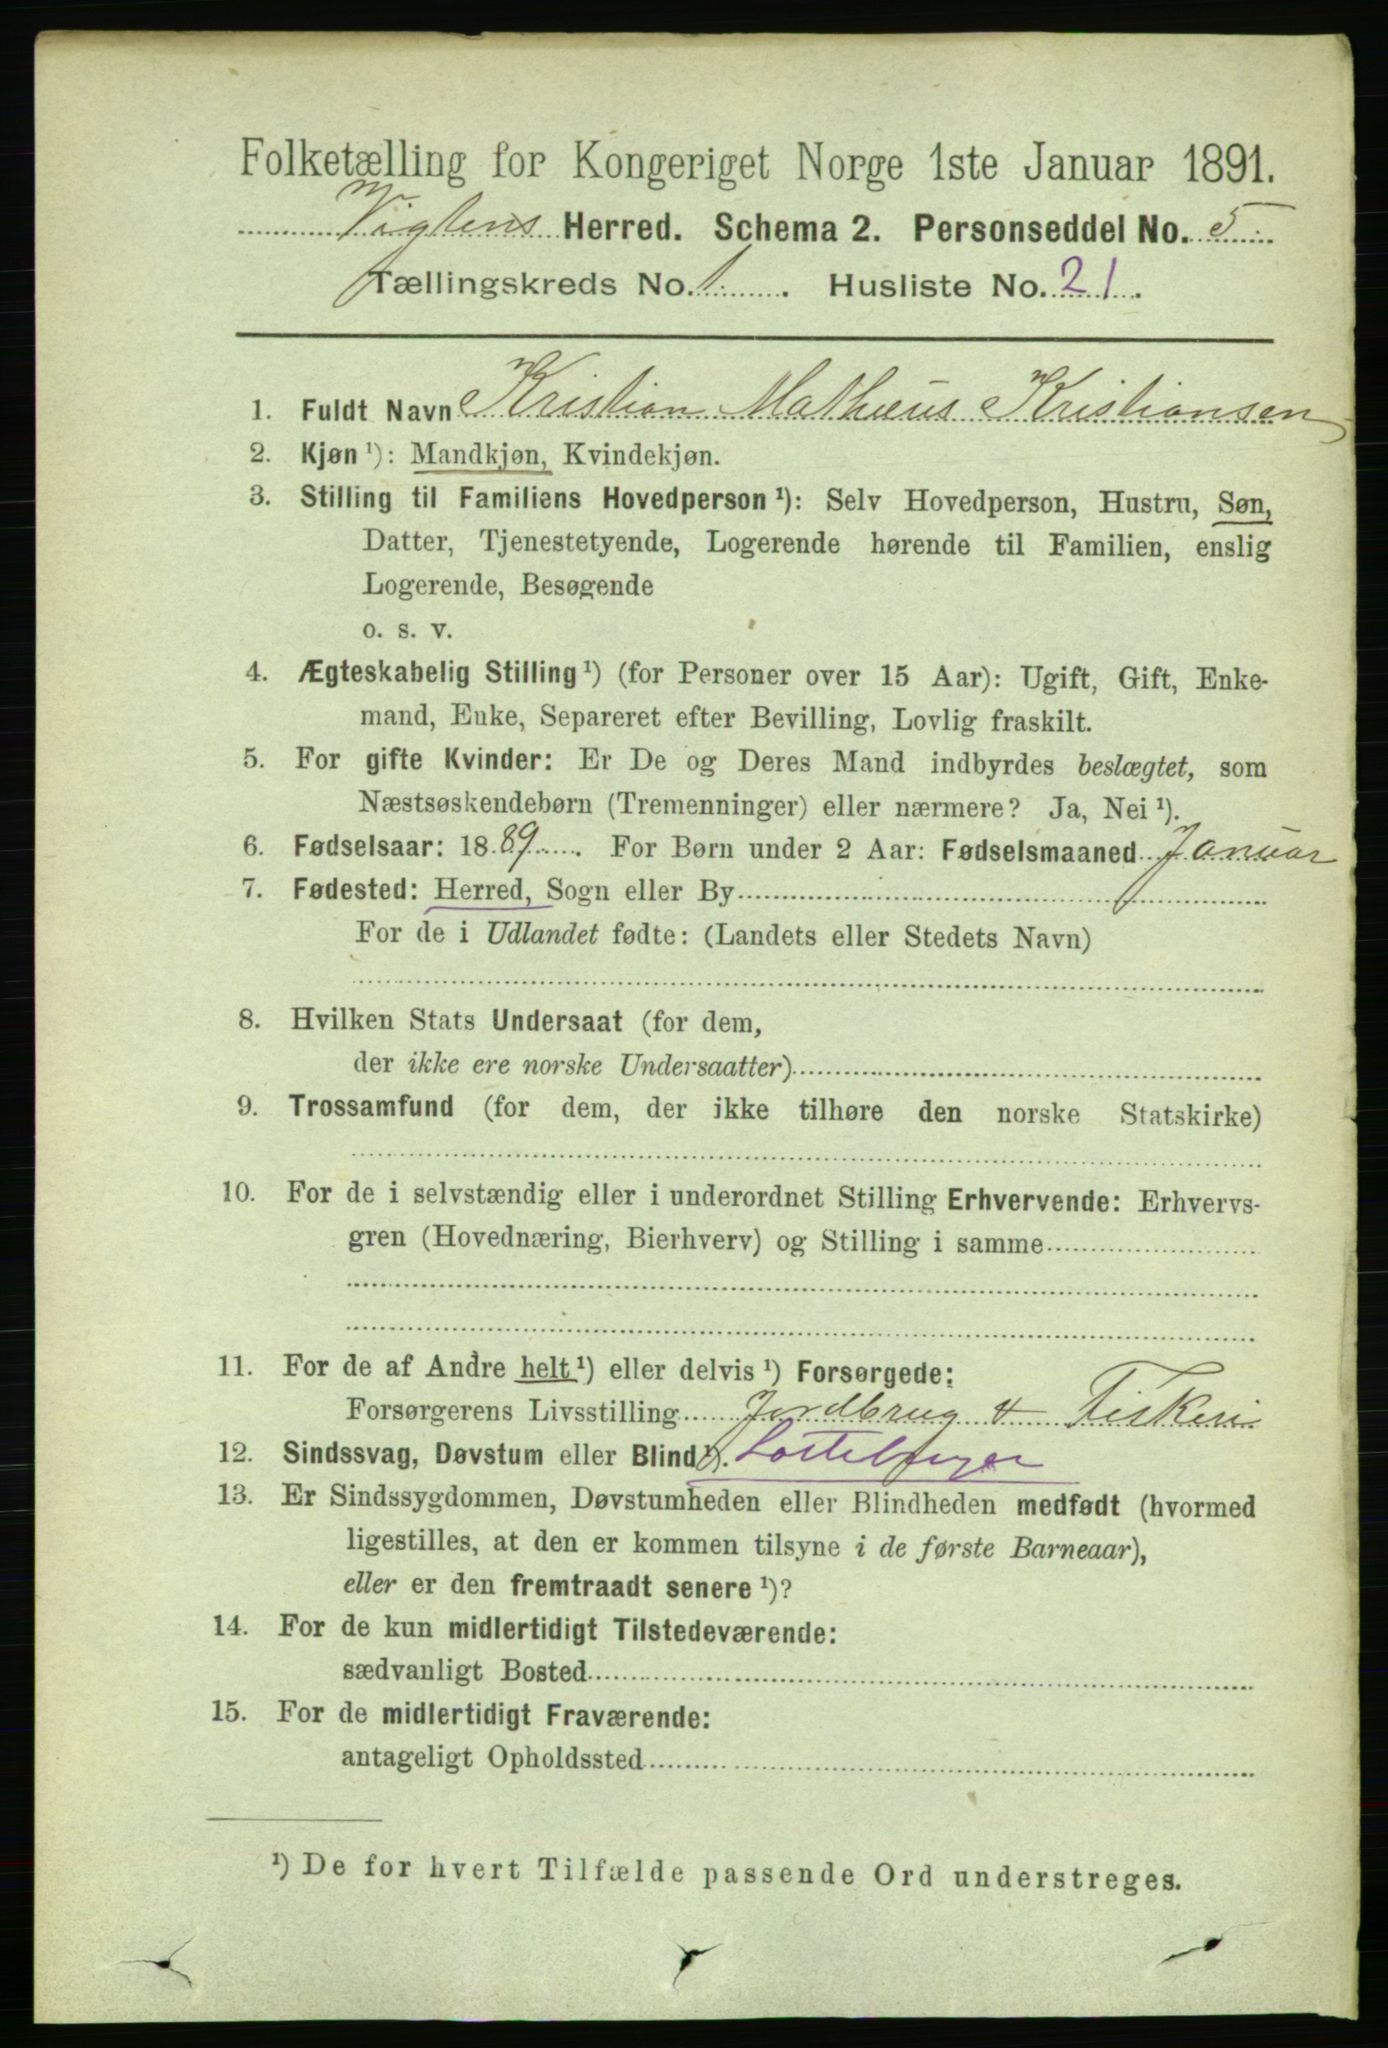 Folketælling for Kongeriget Norge 1ste Januar 1891.
Vigtens Herred. Schema 2. Personseddel No. 5
Tællingskreds No. 1. Husliste No. 21.
1. Fuldt Navn Kristian Mathæus Kristiansen
2. Kjøn¹): Mandkjøn, Kvindekjøn.
3. Stilling til Familiens Hovedperson¹): Selv Hovedperson, Hustru, Søn,
Datter, Tjenestetyende, Logerende hørende til Familien, enslig
Logerende, Besøgende
o. s. v.
4. Ægteskabelig Stilling¹) (for Personer over 15 Aar): Ugift, Gift, Enke-
mand, Enke, Separeret efter Bevilling, Lovlig fraskilt.
5. For gifte Kvinder: Er De og Deres Mand indbyrdes beslægtet, som
Næstsøskendebørn (Tremenninger) eller nærmere? Ja, Nei¹).
6. Fødselsaar: 1889. For Børn under 2 Aar: Fødselsmaaned Januar
7. Fødested: Herred, Sogn eller By
For de i Udlandet fødte: (Landets eller Stedets Navn)
8. Hvilken Stats Undersaat (for dem,
der ikke ere norske Undersaatter)
9. Trossamfund (for dem, der ikke tilhøre den norske Statskirke)
10. For de i selvstændig eller i underordnet Stilling Erhvervende: Erhvervs-
gren (Hovednæring, Bierhverv) og Stilling i samme
11. For de af Andre helt¹) eller delvis¹) Forsørgede:
Forsørgerens Livsstilling Jordbrug & Fiskeri
12. Sindssvag, Døvstum eller Blind¹).
13. Er Sindssygdommen, Døvstumheden eller Blindheden medfødt (hvormed
ligestilles, at den er kommen tilsyne i de første Barneaar),
eller er den fremtraadt senere¹)?
14. For de kun midlertidigt Tilstedeværende:
sædvanligt Bosted
15. For de midlertidigt Fraværende:
antageligt Opholdssted
¹) De for hvert Tilfælde passende Ord understreges.